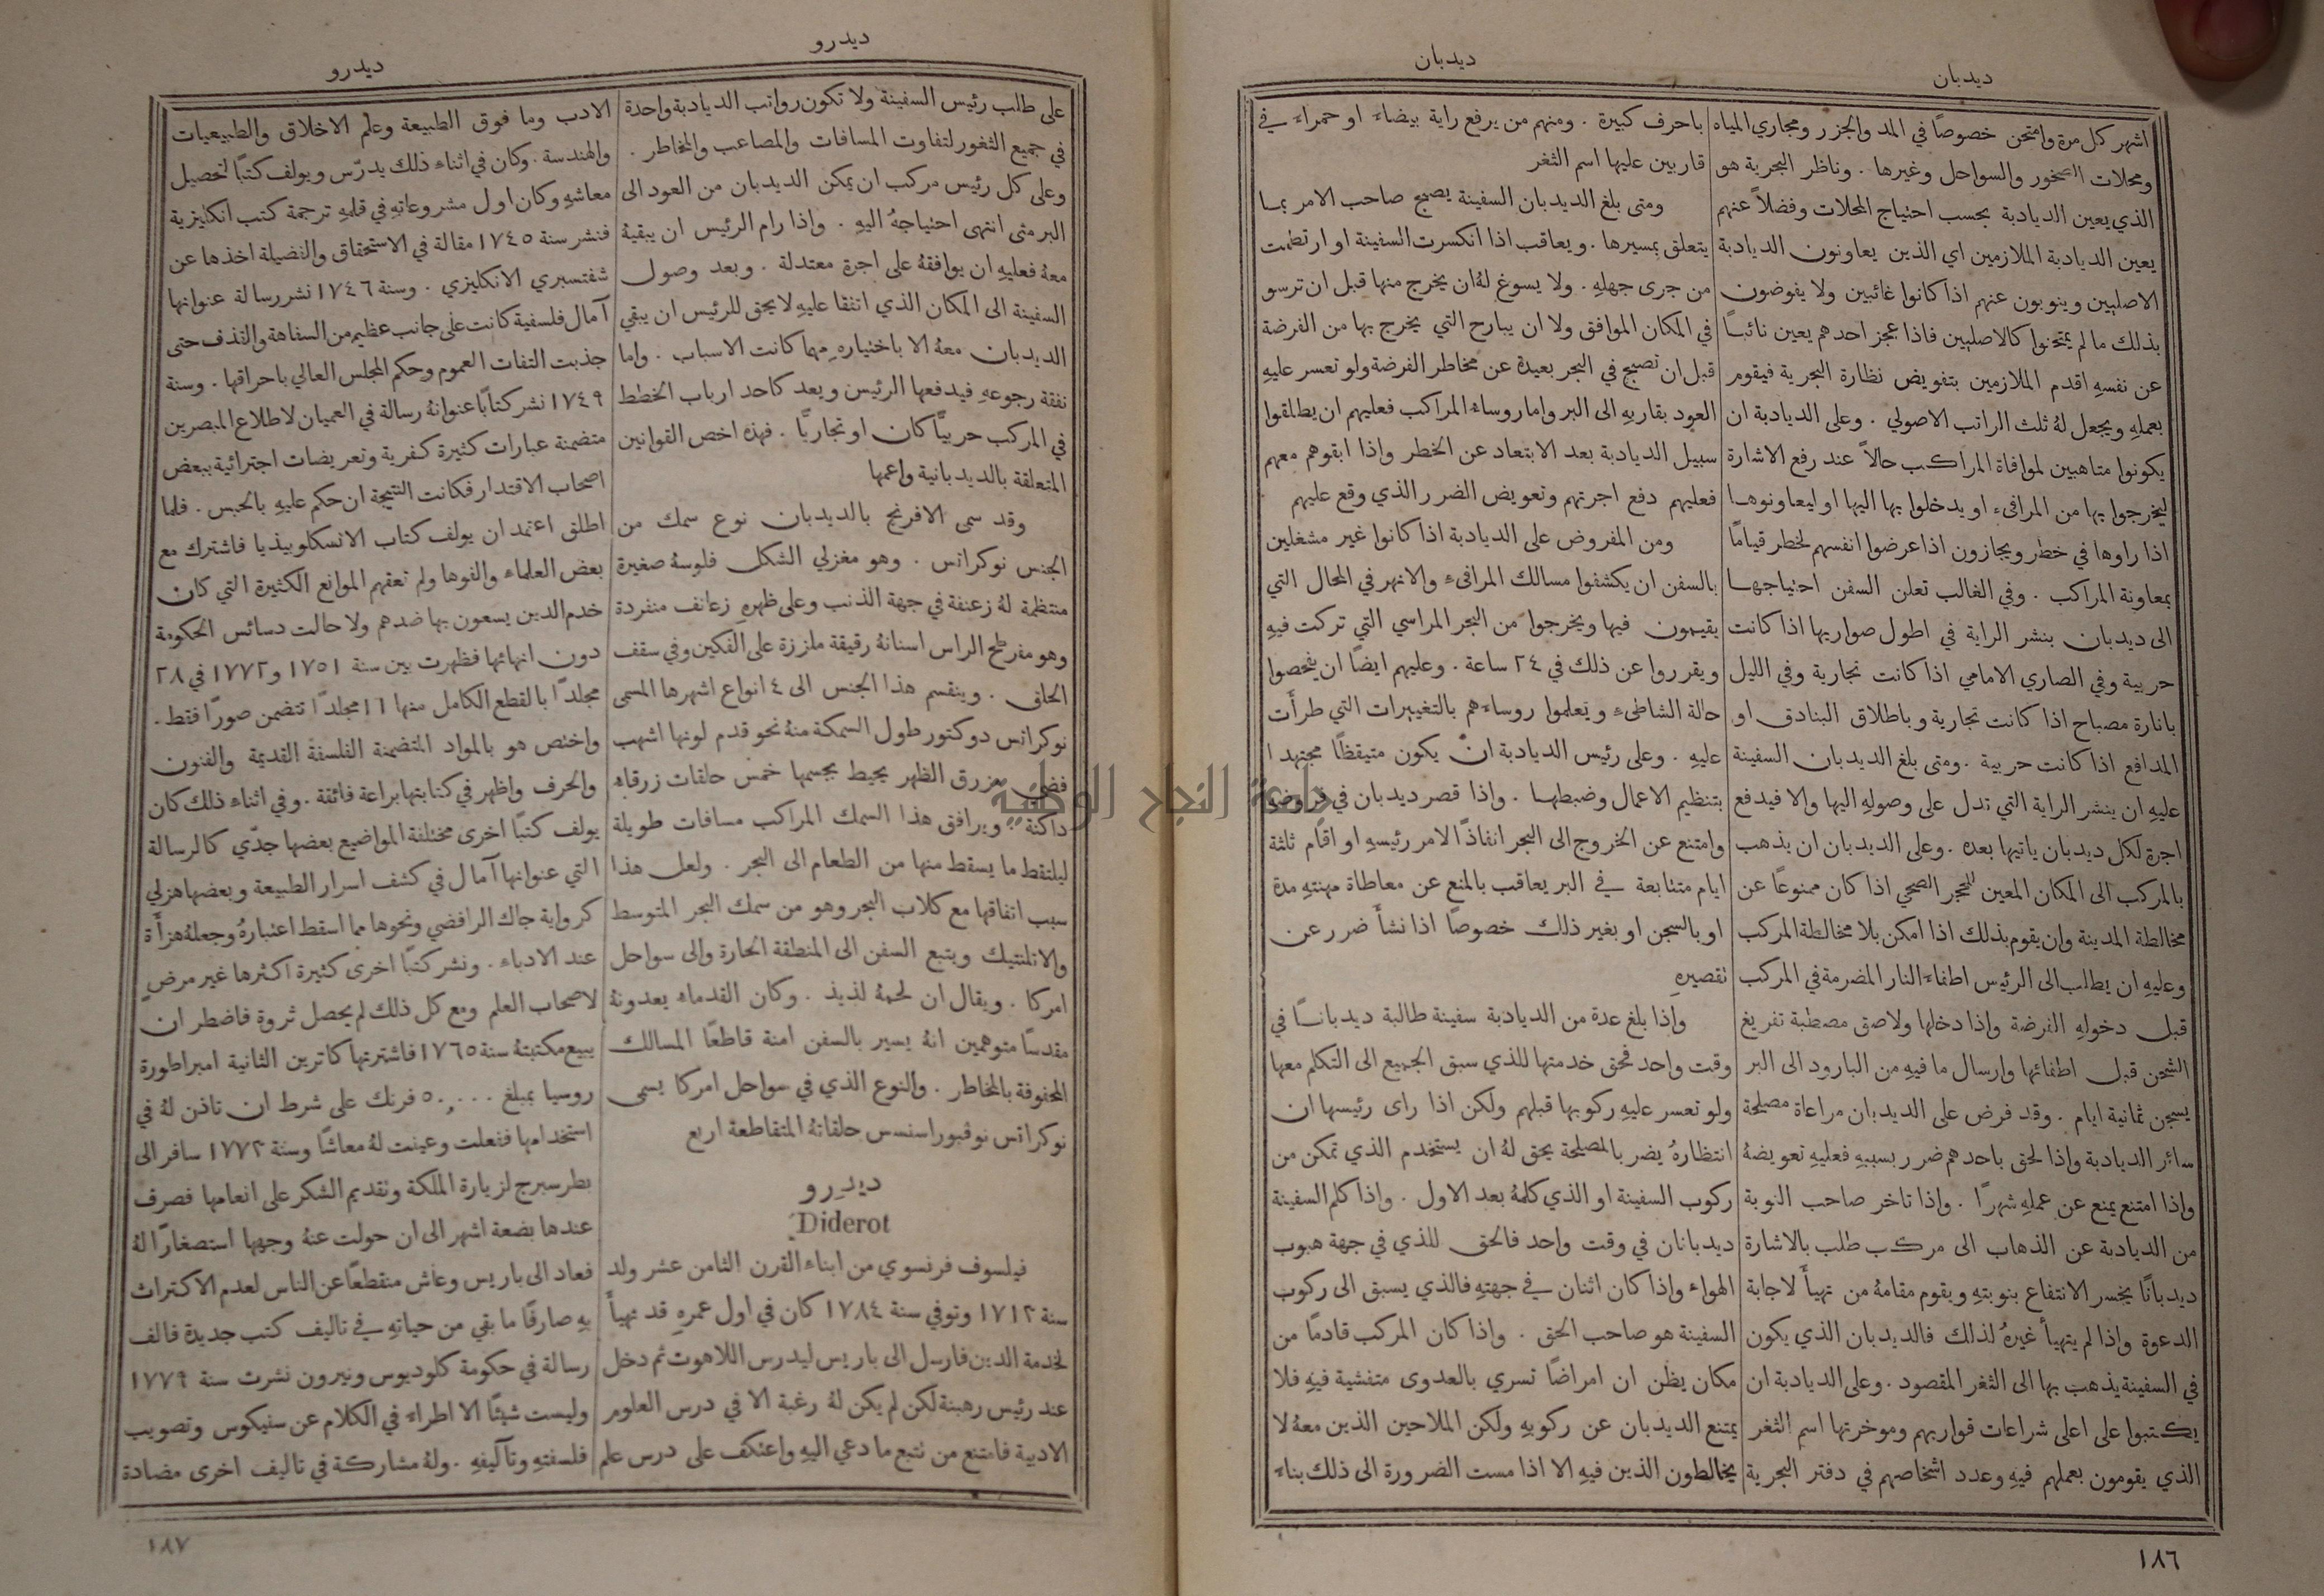 ديدبان
ديدبان
اشهر كل مرة وامتحن خصوصًا في المد والجزر ومجاري المياه
ومحلات الصخور والسواحل وغيرها . وناظر البحرية هو
الذي يعين الديادبة بحسب احتياج المحلات وفضلاً عنهم
يعين الديادبة الملازمين اي الذين يعاونون الديادبة
الاصليين وينوبون عنهم اذا كانوا غائبين ولا يفوضون
بذلك ما لم يمتحنوا كالاصليين فاذا عجز احدهم يعين نائبًا
عن نفسهِ اقدم الملازمين بتفويض نظارة البحرية فيقوم
بعملهِ ويجعل لهُ ثلث الراتب الاصولي . وعلى الديادبة ان
يكونوا متاهبين لموافاة المراكب حالاً عند رفع الاشارة
ليخرجوا بها من المرافىء او يدخلوا بها اليها او ليعاونوها
اذا راوها في خطر ويجازون اذا عرضوا انفسهم لخطر قيامًا
بمعاونة المراكب . وفي الغالب تعلن السفن احتياجها
الى ديدبان بنشر الراية في اطول صواريها اذا كانت
حربية وفي الصاري الامامي اذا كانت تجارية وفي الليل
بانارة مصباح اذا كانت تجارية وباطلاق البنادق او
المدافع اذا كانت حربية . ومتى بلغ الديدبان السفينة
عليهِ ان ينشر الراية التي تدل على وصولهِ اليها والا فيدفع
اجرة لكل ديدبان ياتيها بعده . وعلى الديدبان ان يذهب
بالمركب الى المكان المعين للحجر الصحي اذا كان ممنوعًا عن
مخالطة المدينة وان يقوم بذلك اذا امكن بلا مخالطة المركب
وعليهِ ان يطلب الى الرئيس اطفاء النار المضرمة في المركب
قبل دخولهِ الفرضة واذا دخلها ولاصق مصطبة تفريغ
الشحن قبل اطفائها وارسال ما فيهِ من البارود الى البر
يسجن ثمانية ايام . وقد فرض على الديدبان مراعاة مصلحة
سائر الديادبة واذا لحق باحدهم ضرر بسببهِ فعليهِ تعويضهُ
واذا امتنع يمنع عن عملهِ شهرًا . واذا تاخر صاحب النوبة
من الديادبة عن الذهاب الى مركب طلب بالاشارة
ديدبانًا يخسر الانتفاع بنوبتهِ ويقوم مقامهُ من تهيأَ لاجابة
الدعوة واذا لم يتهيأ غيرهُ لذلك فالديدبان الذي يكون
في السفينة يذهب بها الى الثغر المقصود . وعلى الديادبة ان
يكتبوا على اعلى شراعات قواربهم وموخرتها اسم الثغر
الذي يقومون بعملهم فيهِ وعدد اشخاصهم في دفتر البحرية
باحرف كبيرة . ومنهم من يرفع راية بيضاء او حمراء في
قاربين عليها اسم الثغر
ومتى بلغ الديدبان السفينة يصبح صاحب الامر بما
يتعلق بمسيرها . ويعاقب اذا انكسرت السفينة او ارتطمت
من جرى جهلهِ . ولا يسوغ لهُ ان يخرج منها قبل ان ترسو
في المكان الموافق ولا ان يبارح التي يخرج بها من الفرضة
قبل ان تصبح في البحر بعيدة عن مخاطر الفرضة ولو تعسر عليهِ
العود بقاربهِ الى البر واما روساء المراكب فعليهم ان يطلقوا
سبيل الديادبة بعد الابتعاد عن الخطر واذا ابقوهم معهم
فعليهم دفع اجرتهم وتعويض الضرر الذي وقع عليهم
ومن المفروض على الديادبة اذا كانوا غير مشغلين
بالسفن ان يكشفوا مسالك المرافىء والانهر في المحال التي
يقيمون فيها ويخرجوا من البحر المراسي التي تركت فيهِ
ويقرروا عن ذلك في ٢٤ ساعة . وعليهم ايضًا ان يفحصوا
حالة الشاطىء ويعلموا روساءهم بالتغييرات التي طرأَت
عليهِ . وعلى رئيس الديادبة ان يكون متيقظًا مجتهدا
بتنظيم الاعمال وضبطها . واذا قصر ديدبان في فروضهِ
وامتنع عن الخروج الى البحر انفاذًا لامر رئيسهِ او اقام ثلثة
ايام متتابعة في البر يعاقب بالمنع عن معاطاة مهنتهِ مدة
او بالسجن او بغير ذلك خصوصًا اذا نشأَ ضرر عن
تقصيرهِ
واذا بلغ عدة من الديادبة سفينة طالبة ديدبانًا في
وقت واحد فحق خدمتها للذي سبق الجميع الى التكلم معها
ولو تعسر عليهِ ركوبها قبلهم ولكن اذا راى رئيسها ان
انتظارهُ يضر بالمصلحة يحق لهُ ان يستخدم الذي تمكن من
ركوب السفينة او الذي كلمهُ بعد الاول . واذا كلم السفينة
ديدبانان في وقت واحد فالحق للذي في جهة هبوب
الهواء واذا كان اثنان في جهتهِ فالذي يسبق الى ركوب
السفينة هو صاحب الحق . واذا كان المركب قادمًا من
مكان يظن ان امراضًا تسري بالعدوى متفشية فيهِ فلا
يمتنع الديدبان عن ركوبهِ ولكن الملاحين الذين معهُ لا
يخالطون الذين فيهِ الا اذا مست الضرورة الى ذلك بناء
١٨٦
ديدرو
ديدرو
على طلب رئيس السفينة ولا تكون رواتب الديادبة واحدة
في جميع الثغور لتفاوت المسافات والمصاعب والمخاطر .
وعلى كل رئيس مركب ان يمكن الديدبان من العود الى
البر متى انتهى احتياجهُ اليهِ . واذا رام الرئيس ان يبقيهُ
معهُ فعليهِ ان يوافقهُ على اجرة معتدلة . وبعد وصول
السفينة الى المكان الذي اتفقا عليهِ لا يحق للرئيس ان يبقي
الديدبان معهُ الا باختيارهِ مهما كانت الاسباب . واما
نفقة رجوعهِ فيدفعها الرئيس ويعد كاحد ارباب الخطط
في المركب حربيًّا كان او تجاريًّا . فهذه اخص القوانين
المتعلقة بالديدبانية واعمها
وقد سمى الافرنج بالديدبان نوع سمك من
الجنس نوكراتس . وهو مغزلي الشكل فلوسهُ صغيرة
منتظمة لهُ زعنفة في جهة الذنب وعلى ظهرهِ زعانف منفردة
وهو مفرطح الراس اسنانهُ رقيقة ملززة على الفكين وفي سقف
الحلق . وينقسم هذا الجنس الى ٤ انواع اشهرها المسمى
نوكراتس دوكتور طول السمكة منهُ نحو قدم لونها اشهب
فضي مزرق الظهر يحيط بجسمها خمس حلقات زرقاء
داكنة . ويرافق هذا السمك المراكب مسافات طويلة
ليلتقط ما يسقط منها من الطعام الى البحر . ولعل هذا
سبب اتفاقها مع كلاب البحر وهو من سمك البحر المتوسط
والاتلنتيك ويتبع السفن الى المنطقة الحارة والى سواحل
امركا . ويقال ان لحمهُ لذيذ . وكان القدماء يعدونهُ
مقدسًا متوهمين انهُ يسير بالسفن امنة قاطعًا المسالك
المحفوفة بالمخاطر . والنوع الذي في سواحل امركا يسمى
نوكراتس نوفبوراسنسس حلقاتهُ المتقاطعة اربع
ديدرو
Diderot
فيلسوف فرنسوي من ابناء القرن الثامن عشر ولد
سنة ١٧١٢ وتوفي سنة ١٧٨٤ كان في اول عمرهِ قد تهيأَ
لخدمة الدين فارسل الى باريس ليدرس اللاهوت ثم دخل
عند رئيس رهبنة لكن لم يكن لهُ رغبة الا في درس العلوم
الادبية فامتنع من تتبع ما دعي اليهِ واعتكف على درس علم
الادب وما فوق الطبيعة وعلم الاخلاق والطبيعيات
والهندسة . وكان في اثناء ذلك يدرّس ويولف كتبًا لتحصيل
معاشهِ وكان اول مشروعاتهِ في قلمهِ ترجمة كتب انكليزية
فنشر سنة ١٧٤٥ مقالة في الاستحقاق والفضيلة اخذها عن
شفتسبري الانكليزي . وسنة ١٧٤٦ نشر رسالة عنوانها
آمال فلسفية كانت على جانب عظيم من السفاهة والقذف حتى
جذبت التفات العموم وحكم المجلس العالي باحراقها . وسنة
١٧٤٩ نشر كتابًا عنوانهُ رسالة في العميان لاطلاع المبصرين
متضمنة عبارات كثيرة كفرية وتعريضات اجترائية ببعض
اصحاب الاقتدار فكانت النتيجة ان حكم عليهِ بالحبس . فلما
اطلق اعتمد ان يولف كتاب الانسكلوبيذيا فاشترك مع
بعض العلماء والفوها ولم تعقهم الموانع الكثيرة التي كان
خدم الدين يسعون بها ضدهم ولا حالت دسائس الحكومة
دون انهائها فظهرت بين سنة ١٧٥١ و١٧٧٢ في ٢٨
مجلدًا بالقطع الكامل منها ١١ مجلدًا تتضمن صورًا فقط .
واختص هو بالمواد المتضمنة الفلسفة القديمة والفنون
والحرف واظهر في كتابتها براعة فائقة . وفي اثناء ذلك كان
يولف كتبًا اخرى مختلفة المواضيع بعضها جدّي كالرسالة
التي عنوانها آمال في كشف اسرار الطبيعة وبعضها هزلي
كرواية جاك الرافضي ونحوها مما اسقط اعتبارهُ وجعلهُ هزأَة
عند الادباء . ونشر كتبًا اخرى كثيرة اكثرها غير مرضٍ
لاصحاب العلم ومع كل ذلك لم يحصل ثروة فاضطر ان
يبيع مكتبتهُ سنة ١٧٦٥ فاشترتها كاترين الثانية امبراطورة
روسيا بمبلغ ٥٠,٠٠٠ فرنك على شرط ان تاذن لهُ في
استخدامها ففعلت وعينت لهُ معاشًا وسنة ١٧٧٢ سافر الى
بطرسبرج لزيارة الملكة وتقديم الشكر على انعامها فصرف
عندها بضعة اشهر الى ان حولت عنهُ وجهها استصغارًا لهُ
فعاد الى باريس وعاش منقطعًا عن الناس لعدم الاكتراث
بهِ صارفًا ما بقي من حياتهِ في تاليف كتب جديدة فالف
رسالة في حكومة كلوديوس ونيرون نشرت سنة ١٧٧٩
وليست شيئًا الا اطراء في الكلام عن سنيكوس وتصويب
فلسفتهِ وتآليفهِ . ولهُ مشاركة في تاليف اخرى مضادة
١٨٧
جامعة النجاح الوطنية